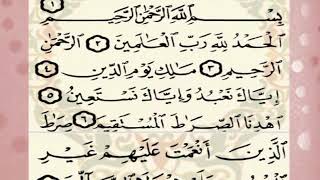 بِسْمِ ٱللَّهِ ٱلرَّحْمَٰنِ ٱلرَّحِيمِ ١
ٱلْحَمْدُ لِلَّهِ رَبِّ ٱلْعَالَمِينَ ٢ ٱلرَّحْمَٰنِ
ٱلرَّحِيمِ ٣ مَالِكِ يَوْمِ ٱلدِّينِ ٤
إِيَّاكَ نَعْبُدُ وَإِيَّاكَ نَسْتَعِينُ ٥
ٱهْدِنَا ٱلصِّرَاطَ ٱلْمُسْتَقِيمَ ٦ صِرَاطَ
ٱلَّذِينَ أَنْعَمْتَ عَلَيْهِمْ غَيْرِ